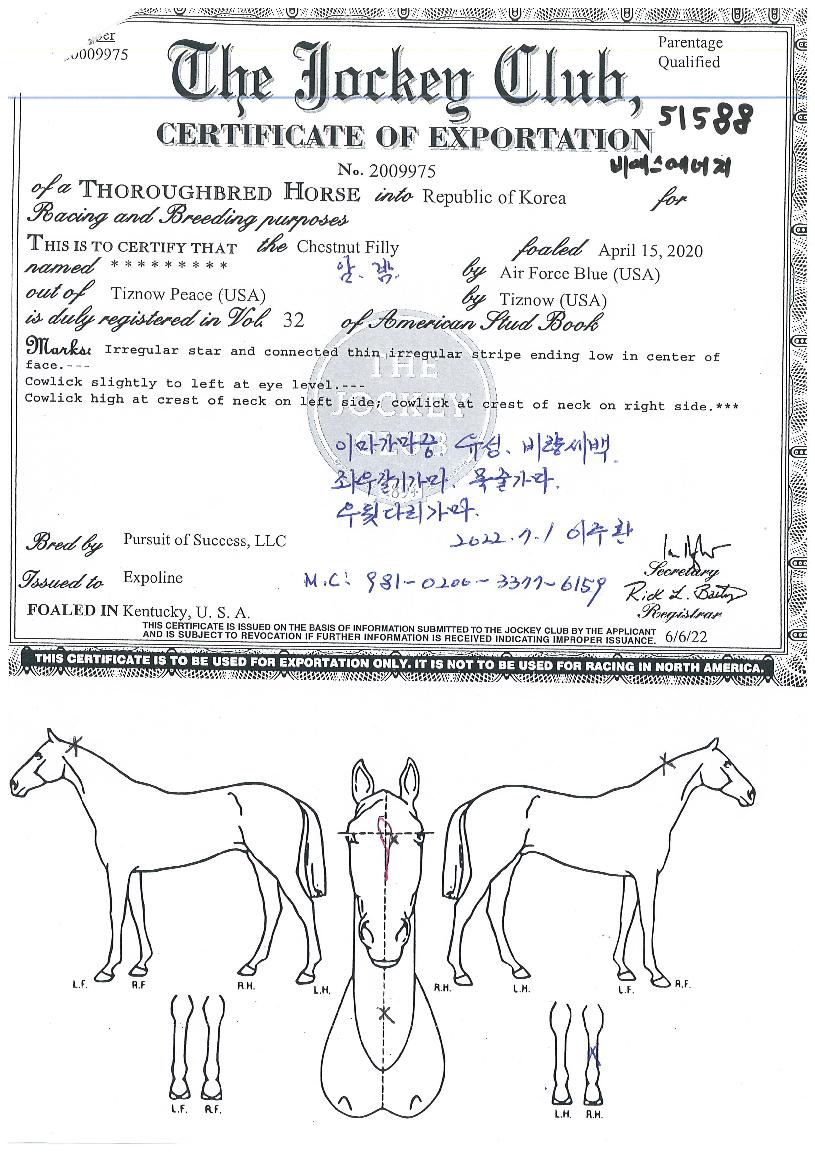 0009975
Parentage
Qualified
The Jockey Club,
CERTIFICATE OF EXPORTATION
51588
비에스에너지
No. 2009975
of a THOROUGHBRED HORSE into Republic of Korea for
Racing and Breeding purposes
THIS IS TO CERTIFY THAT the Chestnut Filly foaled April 15, 2020
named * * * * * * * * * 암. by Air Force Blue (USA)
out of Tiznow Peace (USA) by Tiznow (USA)
is duly registered in Vol. 32 of American Stud Book
Marks: Irregular star and connected thin irregular stripe ending low in center of
face.---
Cowlick slightly to left at eye level.---
Cowlick high at crest of neck on left side; cowlick at crest of neck on right side.***
THE
JOCKEY
CLUB
1894
이마가마중. 유성. 비량세백.
좌우갈기가마. 목줄가마.
우뒷다리가마.
2022.7.1 이주환
Bred by Pursuit of Success, LLC
Secretary
Issued to Expoline
M.C: 981-0200-3377-6159
Rick L. Bailey
Registrar
FOALED IN Kentucky, U. S. A.
THIS CERTIFICATE IS ISSUED ON THE BASIS OF INFORMATION SUBMITTED TO THE JOCKEY CLUB BY THE APPLICANT
AND IS SUBJECT TO REVOCATION IF FURTHER INFORMATION IS RECEIVED INDICATING IMPROPER ISSUANCE. 6/6/22
THIS CERTIFICATE IS TO BE USED FOR EXPORTATION ONLY. IT IS NOT TO BE USED FOR RACING IN NORTH AMERICA.
L.F. R.F R.H. L.H. R.H. L.H. L.F. R.F.
L.F. R.F. L.H. R.H.